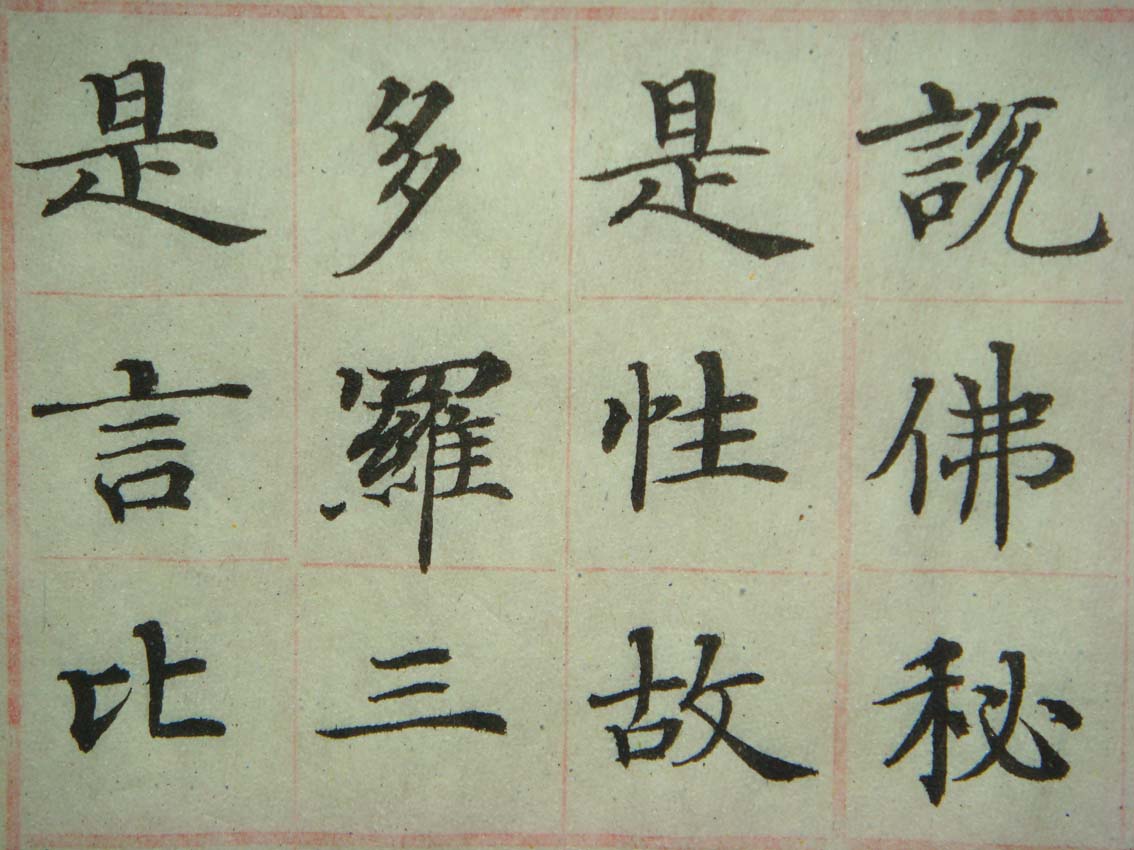 說佛秘
是性故
多羅三
是言比